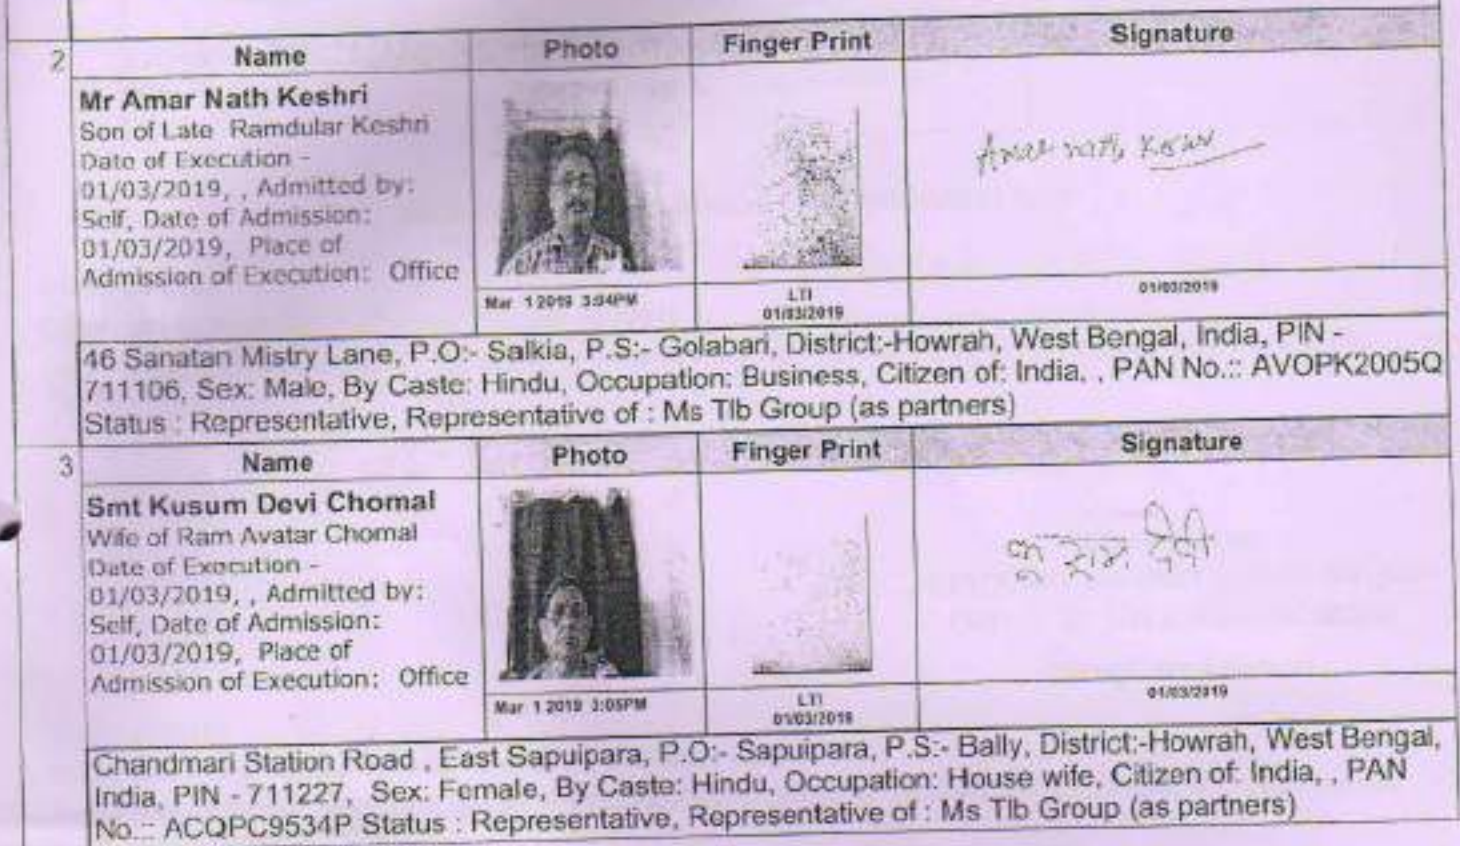 2 Name Photo Finger Print Signature
Mr Amar Nath Keshri
Son of Late Ramdular Keshri
Date of Execution -
01/03/2019, , Admitted by:
Self, Date of Admission:
01/03/2019, Place of
Admission of Execution: Office
Amar nath Keshri
Mar 1 2019 3:04PM
LTI
01/03/2019
01/03/2019
46 Sanatan Mistry Lane, P.O:- Salkia, P.S:- Golabari, District:-Howrah, West Bengal, India, PIN -
711106, Sex: Male, By Caste: Hindu, Occupation: Business, Citizen of: India, , PAN No.:: AVOPK2005Q
Status : Representative, Representative of : Ms Tlb Group (as partners)
3 Name Photo Finger Print Signature
Smt Kusum Devi Chomal
Wife of Ram Avatar Chomal
Date of Execution -
01/03/2019, , Admitted by:
Self, Date of Admission:
01/03/2019, Place of
Admission of Execution: Office
देवी
Mar 1 2019 3:05PM
LTI
01/03/2019
01/03/2019
Chandmari Station Road , East Sapuipara, P.O:- Sapuipara, P.S:- Bally, District:-Howrah, West Bengal,
India, PIN - 711227, Sex: Female, By Caste: Hindu, Occupation: House wife, Citizen of: India, , PAN
No.:: ACQPC9534P Status : Representative, Representative of : Ms Tlb Group (as partners)